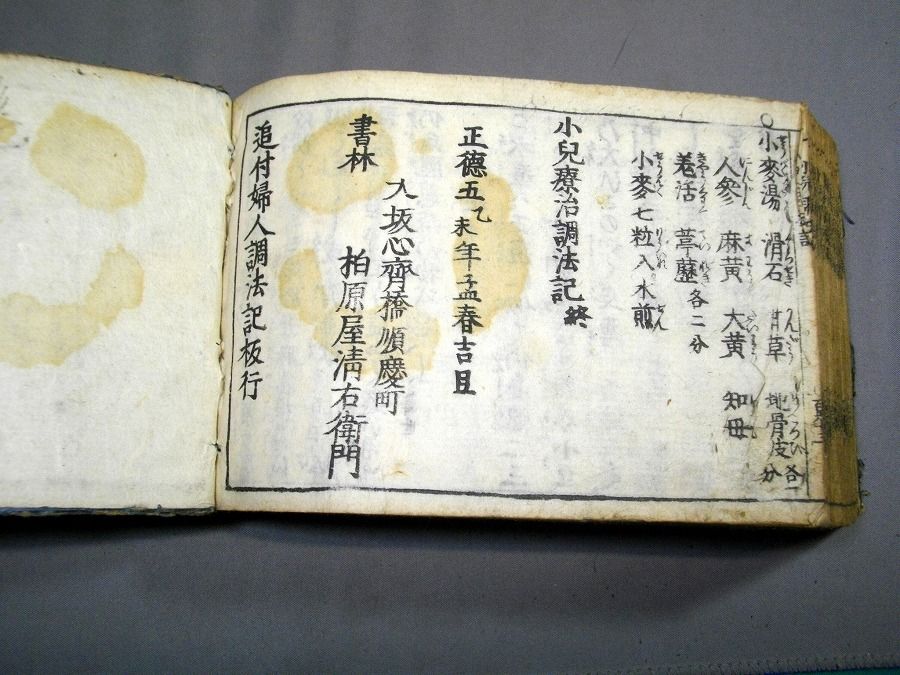 ○小麥湯 滑石 甘草 地骨皮 各一分
人參 麻黄 大黄 知母
羗活 葶藶 各二分
小麥七粒入水煎
小兒療治調法記 終
正德五乙未年孟春吉旦
大坂心齊橋順慶町
書林
柏原屋清右衛門
追付婦人調法記板行